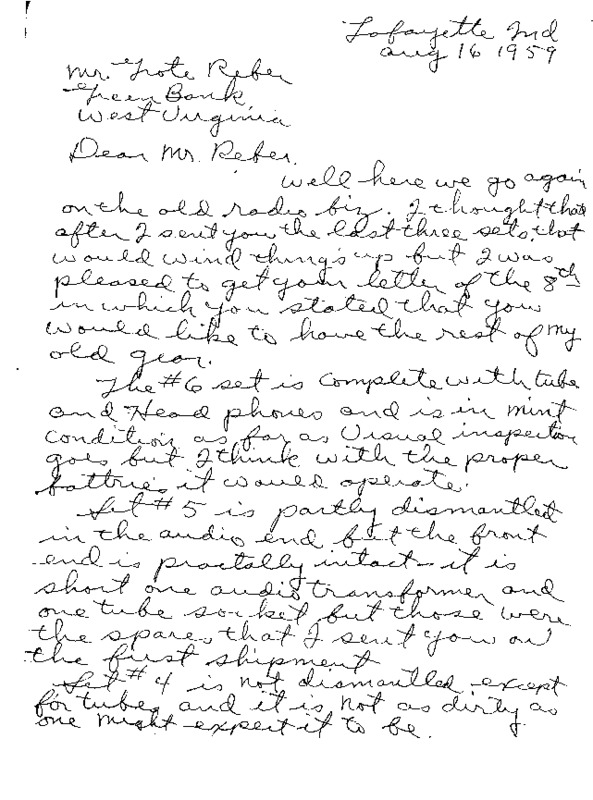 Lafayette Ind
Aug 16 1959
Mr. Grote Reber
Green Bank
West Virginia
Dear Mr. Reber.
Well here we go again
on the old radio biz. I thought that
after I sent you the last three sets, that
would wind things up but I was
pleased to get your letter of the 8th
in which you stated that you
would like to have the rest of my
old gear.
The #6 set is complete with tube
and Head phones and is in mint
condition as far as Visual inspection
goes but I think with the proper
battries it would operate.
Set #5 is partly dismantled
in the audio end but the front
end is practally intact - it is
short one audio transformer and
one tube socket, but those were
the spares that I sent you on
the first shipment
Set #4 is not dismantled except
for tubes and it is not as dirty as
one might expect it to be.